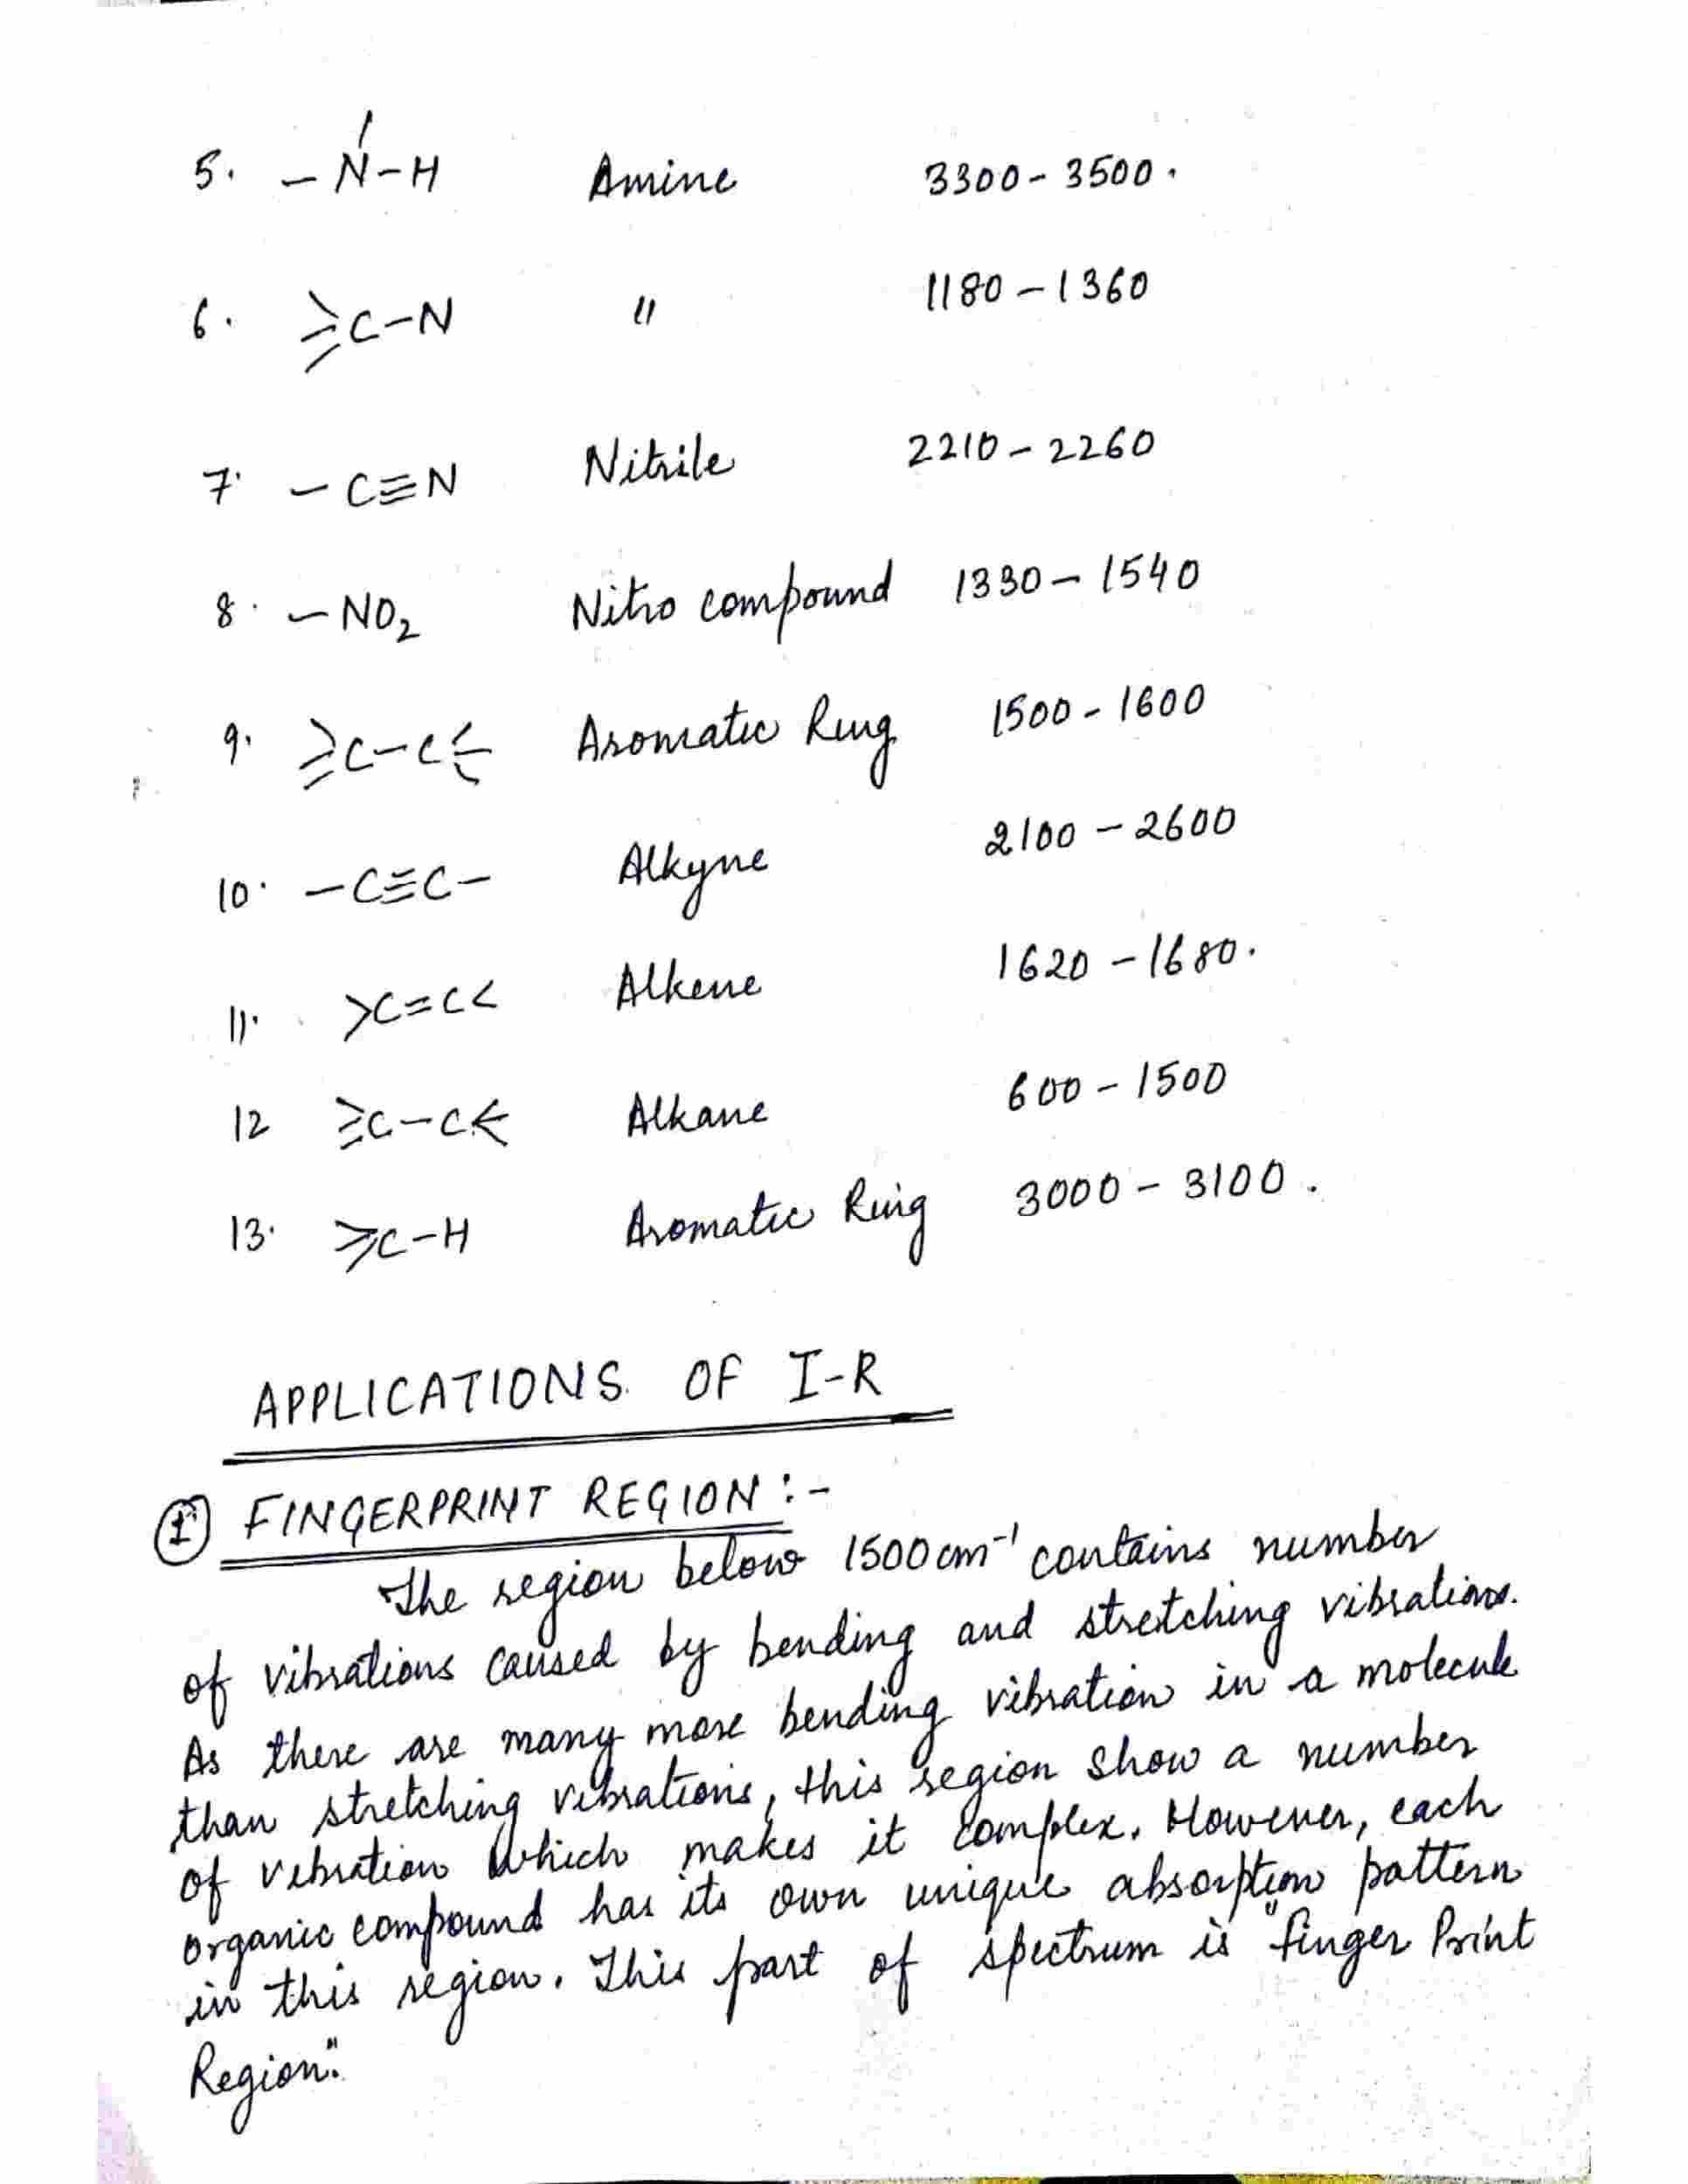 5. -N-H Amine 3300 - 3500.
6. ⪖C-N " 1180 - 1360
7. -C≡N Nitrile 2210 - 2260
8. -NO₂ Nitro compound 1330 - 1540
9. ⪖C-C⪕ Aromatic Ring 1500 - 1600
10. -C≡C- Alkyne 2100 - 2600
11. >C=C< Alkene 1620 - 1680.
12 ⪖C-C⪕ Alkane 600 - 1500
13. ⪖C-H Aromatic Ring 3000 - 3100.
APPLICATIONS OF I-R
① FINGERPRINT REGION :-
The region below 1500 cm⁻¹ contains number
of vibrations caused by bending and stretching vibrations.
As there are many more bending vibration in a molecule
than stretching vibrations, this region show a number
of vibration which makes it complex. However, each
organic compound has its own unique absorption pattern
in this region. This part of spectrum is "finger Print
Region."